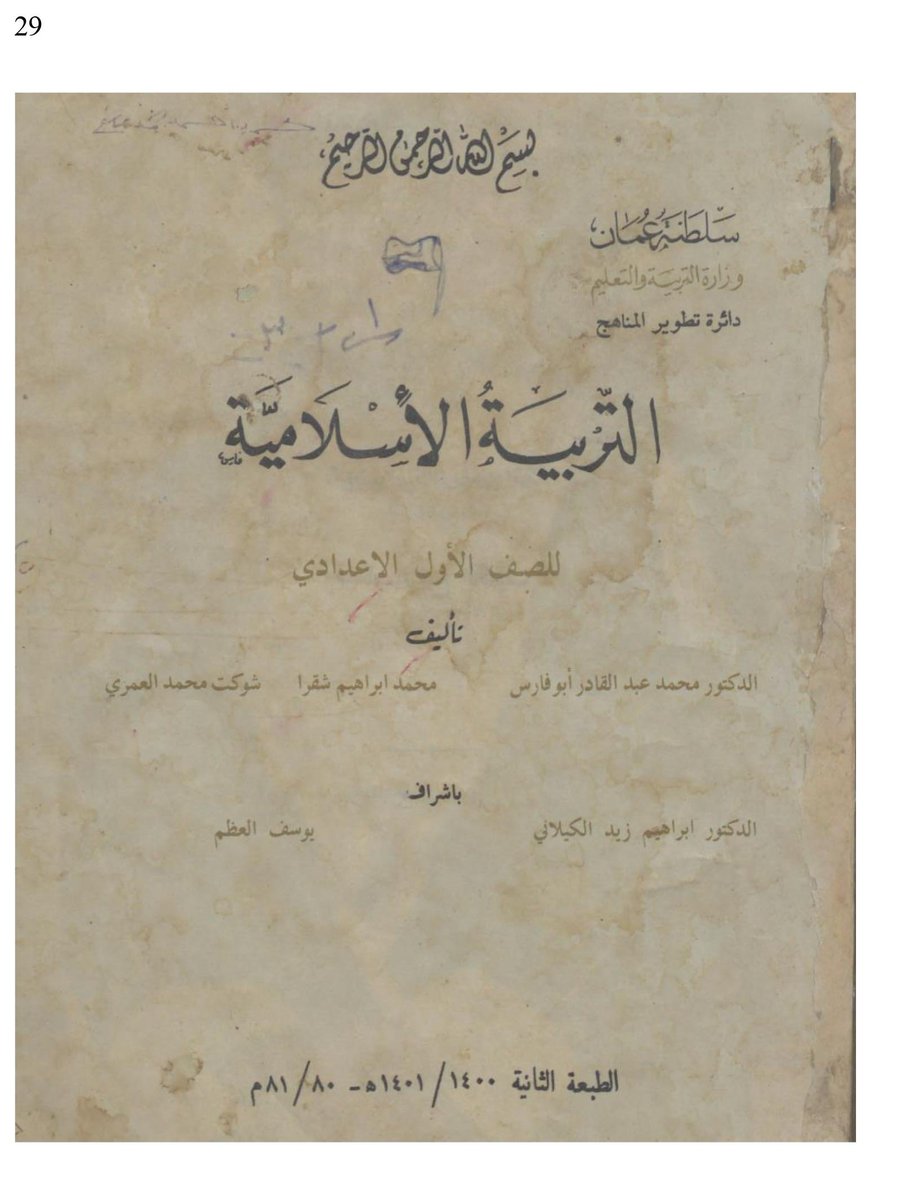 29
بسم الله الرحمن الرحيم
سلطنة عُمان
وزارة التربية والتعليم
دائرة تطوير المناهج
التربية الأسلامية
للصف الأول الاعدادي
تأليف
الدكتور محمد عبد القادر أبو فارس محمد ابراهيم شقرا شوكت محمد العمري
باشراف
الدكتور ابراهيم زيد الكيلاني يوسف العظم
الطبعة الثانية ١٤٠٠/١٤٠١هـ - ٨٠/٨١م